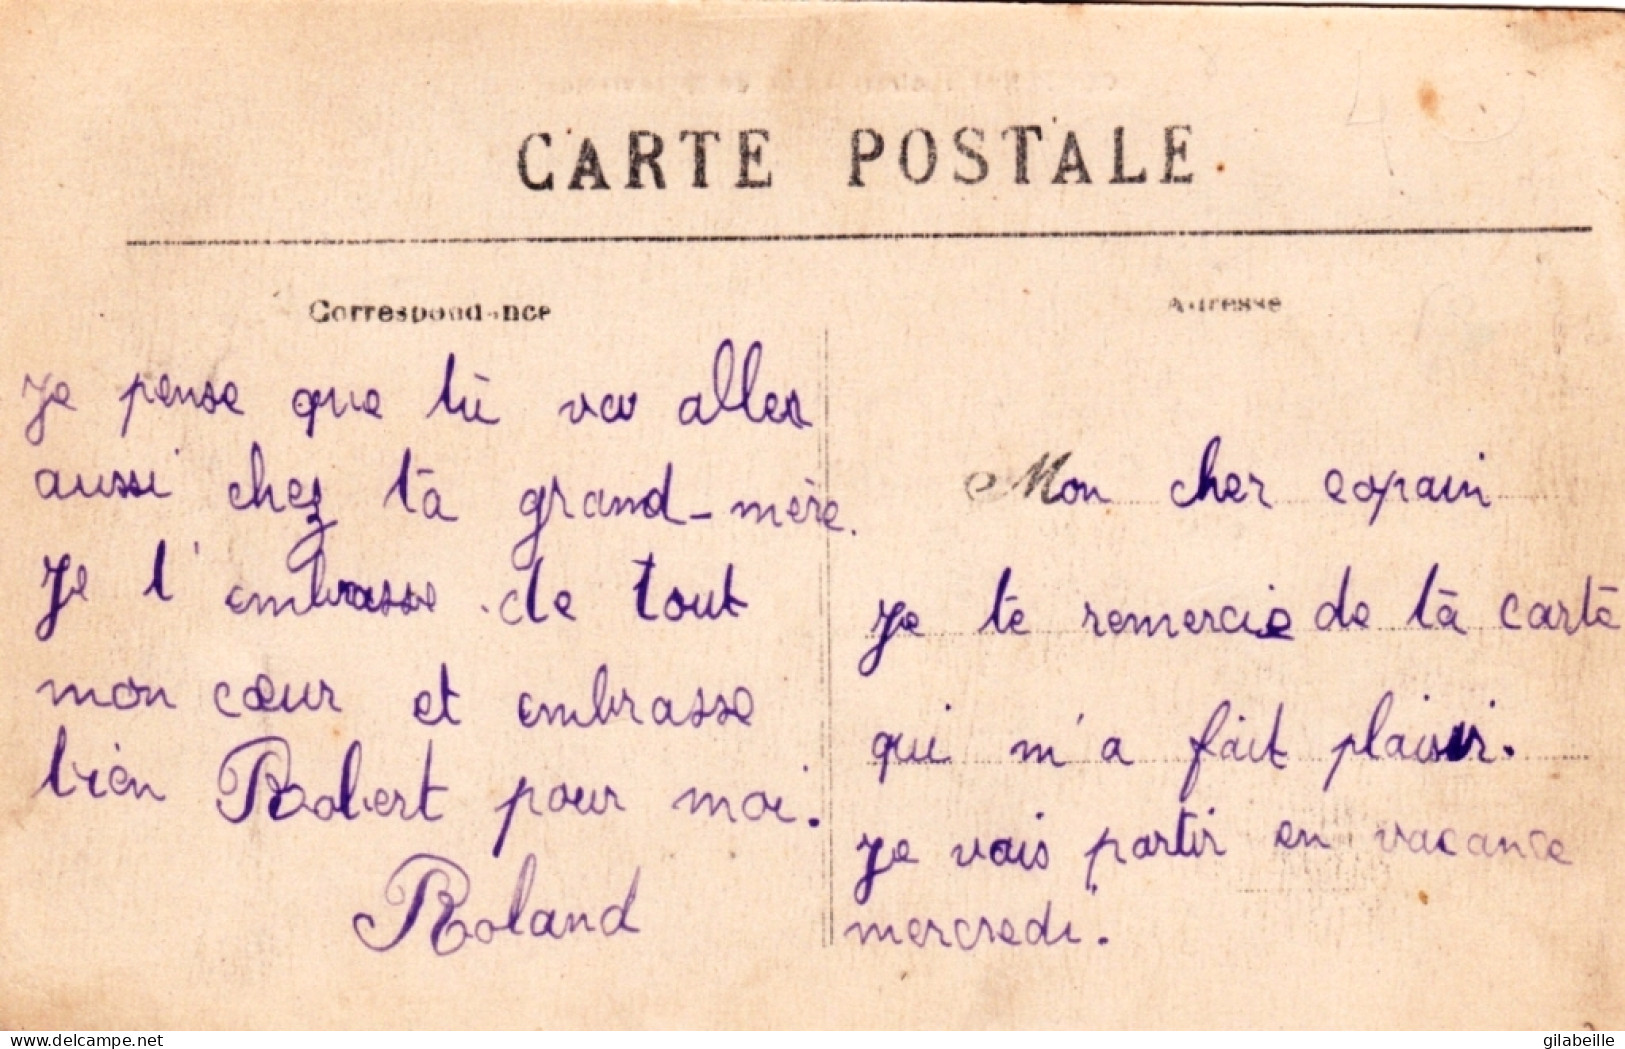 CARTE POSTALE
Correspondance
Adresse
Mon cher copain
Je te remercie de ta carte
qui m'a fait plaisir.
Je vais partir en vacance
mercredi.
Je pense que tu va aller
aussi chez ta grand-mère.
Je t'embrasse de tout
mon cœur et embrasse
bien Robert pour moi.
Roland
www.delcampe.net
gilabeille